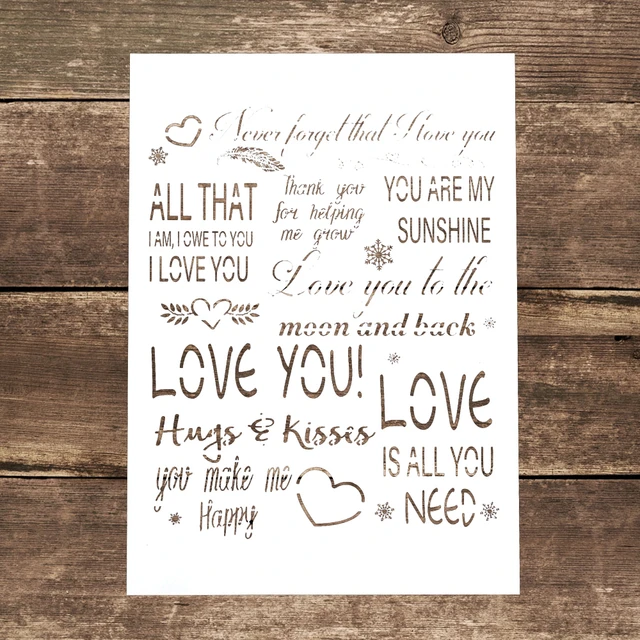 Never forget that I love you
ALL THAT
I AM, I OWE TO YOU
I LOVE YOU
Thank you
for helping
me grow
YOU ARE MY
SUNSHINE
Love you to the
moon and back
LOVE YOU!
Hugs & Kisses
you make me
Happy
LOVE
IS ALL YOU
NEED